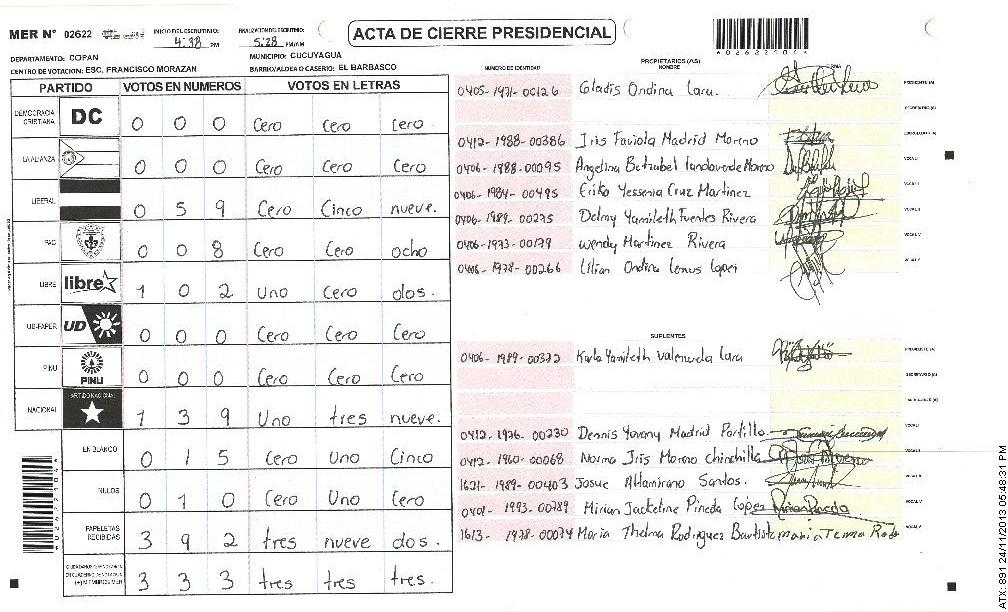 MER N° 02622
INICIO DEL ESCRUTINIO: 4:38 PM
FINALIZACION DEL ESCRUTINIO: 5:28 PM/AM
ACTA DE CIERRE PRESIDENCIAL
DEPARTAMENTO: COPAN
MUNICIPIO: CUCUYAGUA
CENTRO DE VOTACION: ESC. FRANCISCO MORAZAN
BARRIO/ALDEA O CASERIO: EL BARBASCO
PARTIDO VOTOS EN NUMEROS VOTOS EN LETRAS
DEMOCRACIA CRISTIANA DC 0 0 0 Cero Cero Cero.
LA ALIANZA 0 0 0 Cero Cero Cero
LIBERAL 0 5 9 Cero Cinco nueve.
PAC 0 0 8 Cero Cero ocho
LIBRE libre 1 0 2 Uno Cero dos.
UD-FAPER UD 0 0 0 Cero Cero Cero
PINU PINU 0 0 0 Cero Cero Cero
NACIONAL PARTIDO NACIONAL 1 3 9 Uno tres nueve.
EN BLANCO 0 1 5 Cero Uno Cinco
NULOS 0 1 0 Cero Uno Cero
PAPELETAS RECIBIDAS 3 9 2 tres nueve dos.
(+) MIEMBROS MER 3 3 3 tres tres tres.
NUMERO DE IDENTIDAD
PROPIETARIOS (AS)
NOMBRE
FIRMA
0405-1971-00126 Gladis Ondina Lara. PRESIDENTE (A)
SECRETARIO (A)
0412-1988-00386 Iris Faviola Madrid Moreno ESCRUTADOR (A)
0406-1988-00095 Angelina Betzabel Landaverde Moreno VOCAL I
0406-1984-00495 Erika Yessenia Cruz Martinez VOCAL II
0406-1989-00275 Delmy Yamileth Fuentes Rivera VOCAL III
0406-1973-00179 Wendy Martinez Rivera VOCAL IV
0406-1978-00266 Lilian Ondina Lemus Lopez VOCAL V
SUPLENTES
0406-1989-00372 Karla Yamileth Valenzuela Lara PRESIDENTE (A)
SECRETARIO (A)
ESCRUTADOR (A)
0412-1976-00230 Dennis Yovany Madrid Portillo. VOCAL I
0412-1960-00068 Norma Iris Moreno Chinchilla VOCAL II
1621-1989-00403 Josue Altamirano Santos. VOCAL III
0401-1993-00789 Mirian Jackeline Pineda Lopez VOCAL IV
1613-1978-00074 Maria Thelma Rodriguez Bautista VOCAL V
ATX: 891 24/11/2013 05:48:31 PM